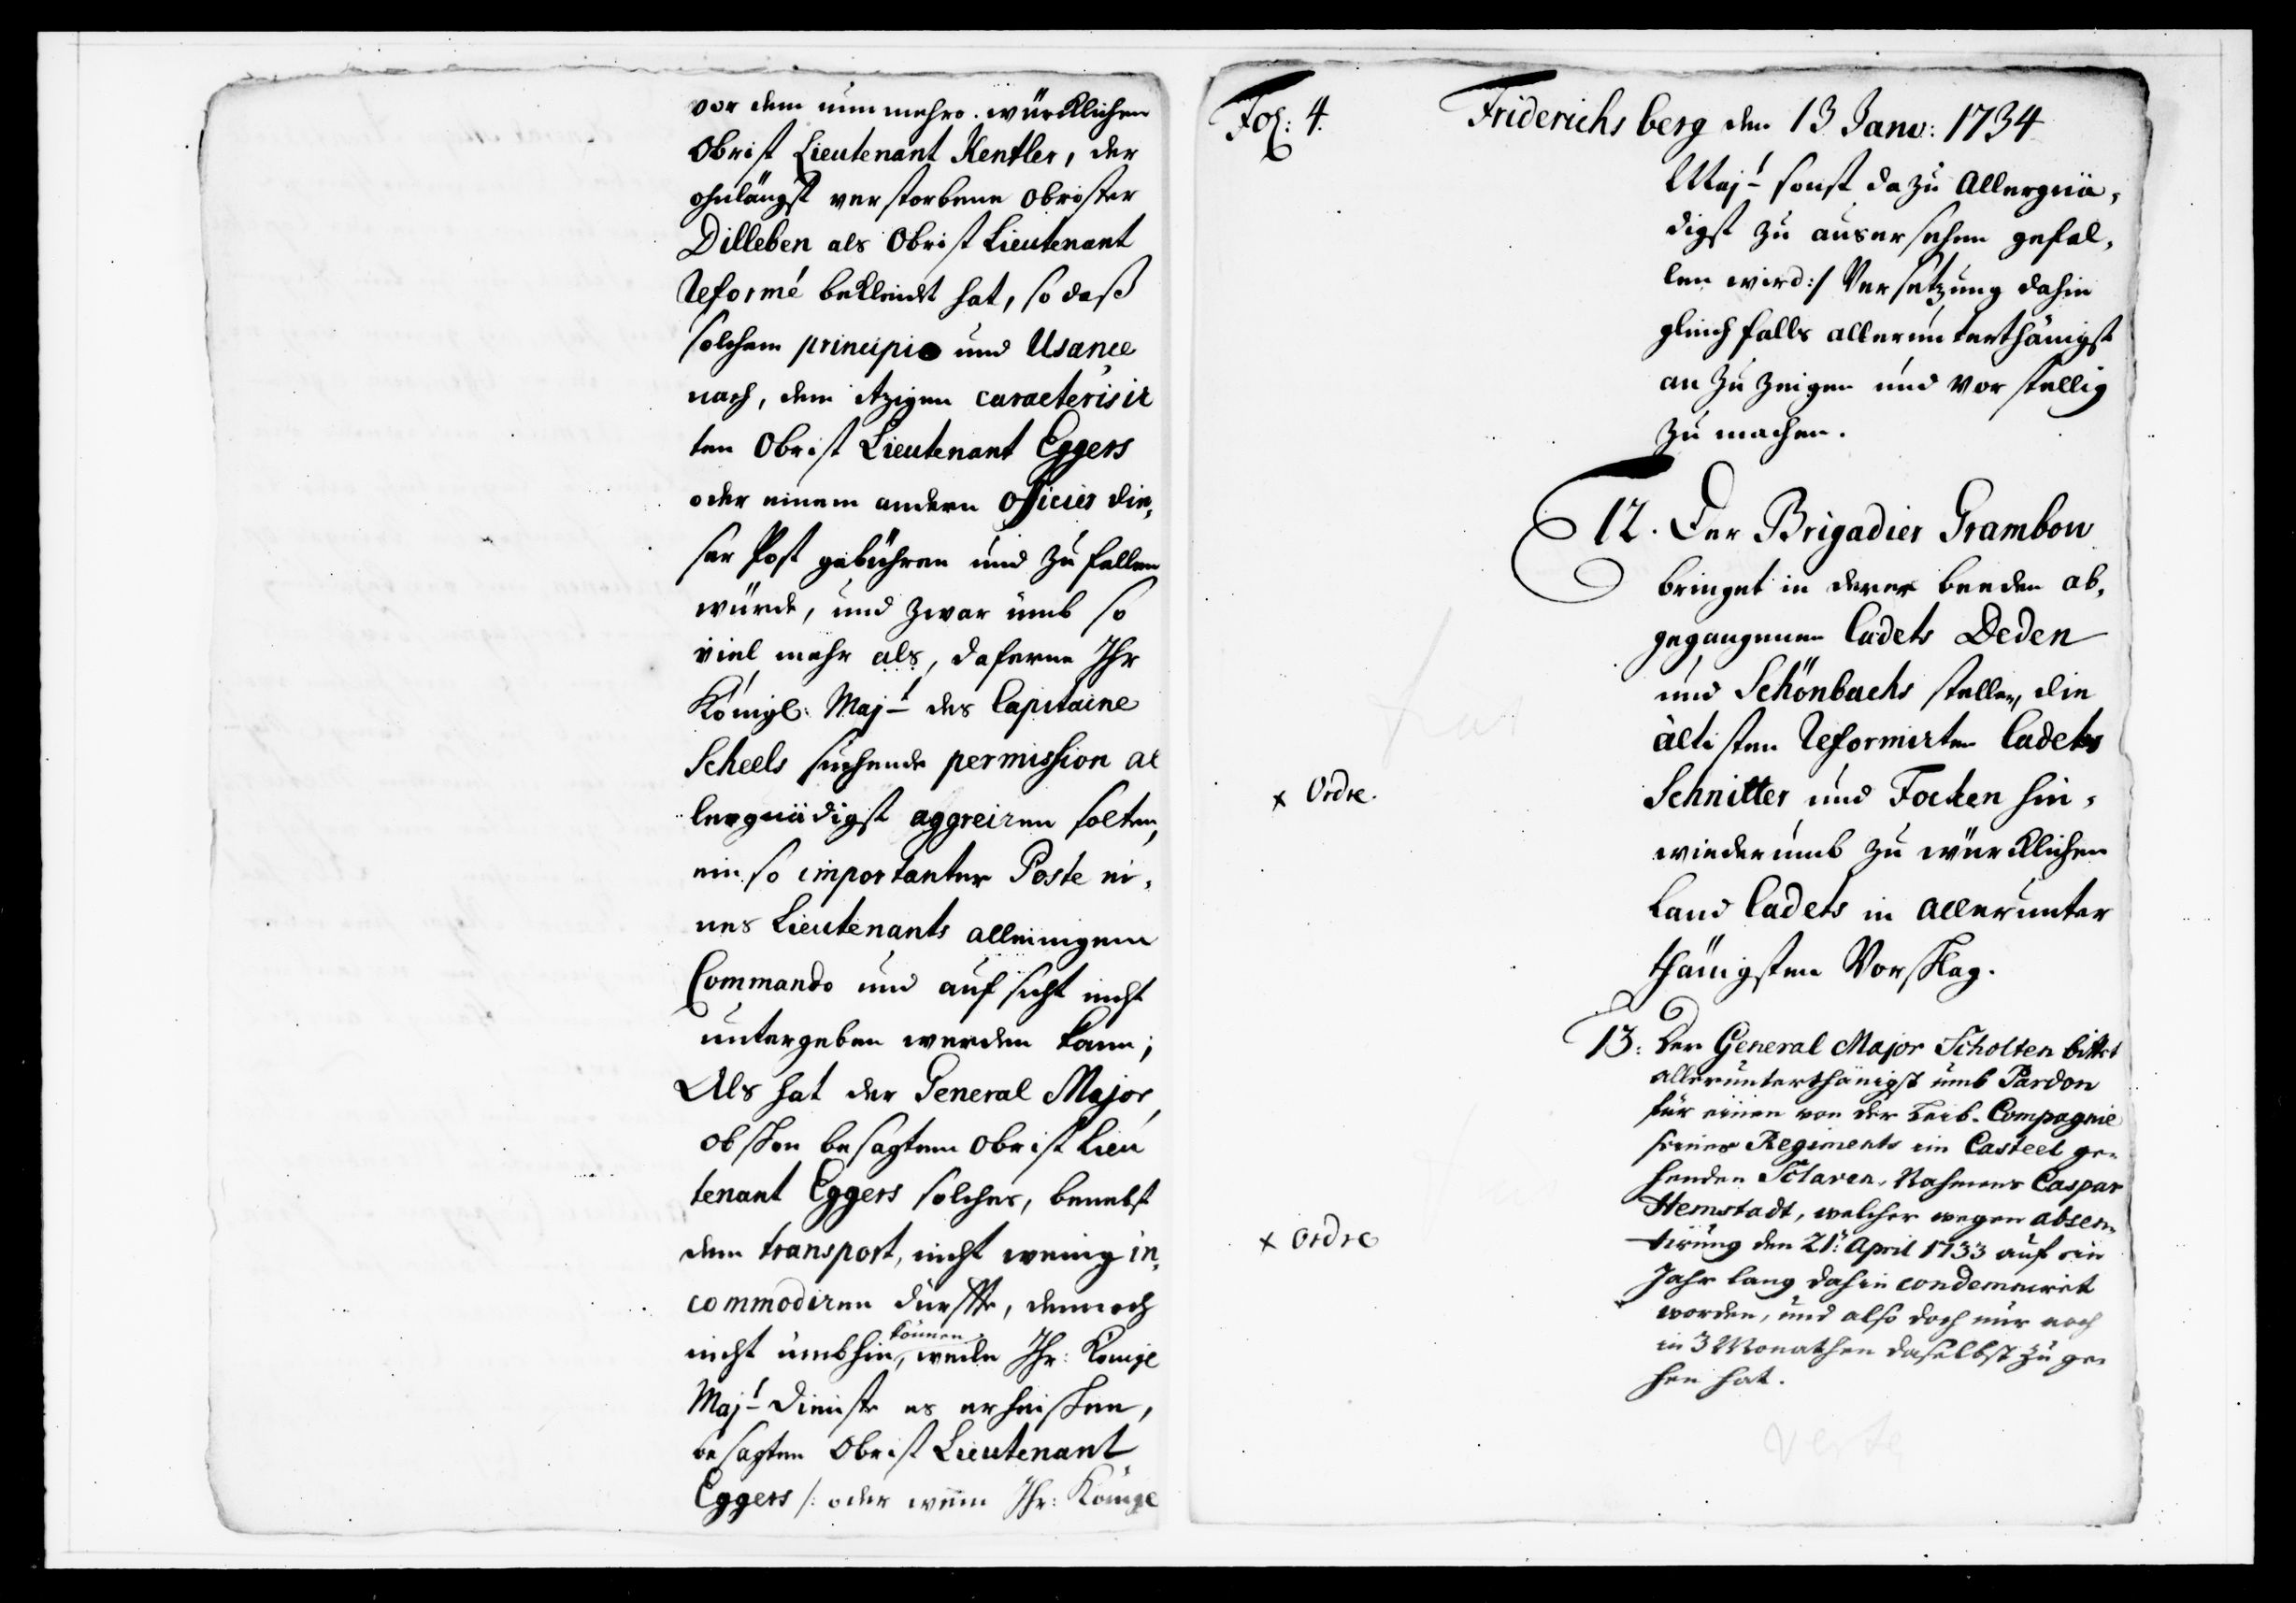 vor dem nunmehro würcklichen
Obrist Lieutenant Kentler, der
ohnlängst verstorbene Obrister
Dilleben als Obrist Lieutenant
Reformé bekleidt hat, so daß
solchem principio und Usance
nach, dem itzigen caracterisir
ten Obrist Lieutenant Eggers
oder einem andern Officier die,
ser Post gebühren und zufallen
würde, und zwar umb so
viel mehr als, daferne Ihr
Königl: Maj:t des Capitaine
Scheels suchende permission al
lergnädigst aggreiren solten,
ein so importanter Poste ei,
nes Lieutenants alleinigem
Commando und aufsicht nicht
untergeben werden kann;
Als hat der General Major,
obschon besagtem Obrist Lieu
tenant Eggers solches, benebst
dem transport, nicht wenig in,
commodiren dürffte, dennoch
nicht umbhin können, weiln Ihr: Königl
Maj:t Dienste es erheischen,
besagten Obrist Lieutenant
Eggers /: oder wenn Ihr: Königl
Fol: 4.
Friderichsberg den 13 Janv: 1734
Maj:t sonst dazu Allergnä,
digst zu ausersehen gefal,
len wird :/ Versetzung dahin
gleichfalls allerunterthänigst
anzuzeigen und vorstellig
zu machen.
12. Der Brigadier Grambow
bringet in derer beeden ab,
gegangenen Cadets Deden
und Schönbachs stellen, die
ältisten Reformirten Cadets
x Ordre.
Schnitter und Focken hin,
wiederumb zu würcklichen
Land Cadets in allerunter
thänigsten Vorschlag.
13: Der General Major Scholten bittet
allerunterthänigst umb Pardon
für einen von der Leib-Compagnie
seines Regiments im Casteel ge,
henden Sclaven, Nahmens Caspar
Hemstadt, welcher wegen absen,
x Ordre
tirung den 21t: April 1733 auf ein
Jahr lang dahin condemniret
worden, und also doch nur noch
in 3 Monathen daselbst zu ge,
hen hat.
verte